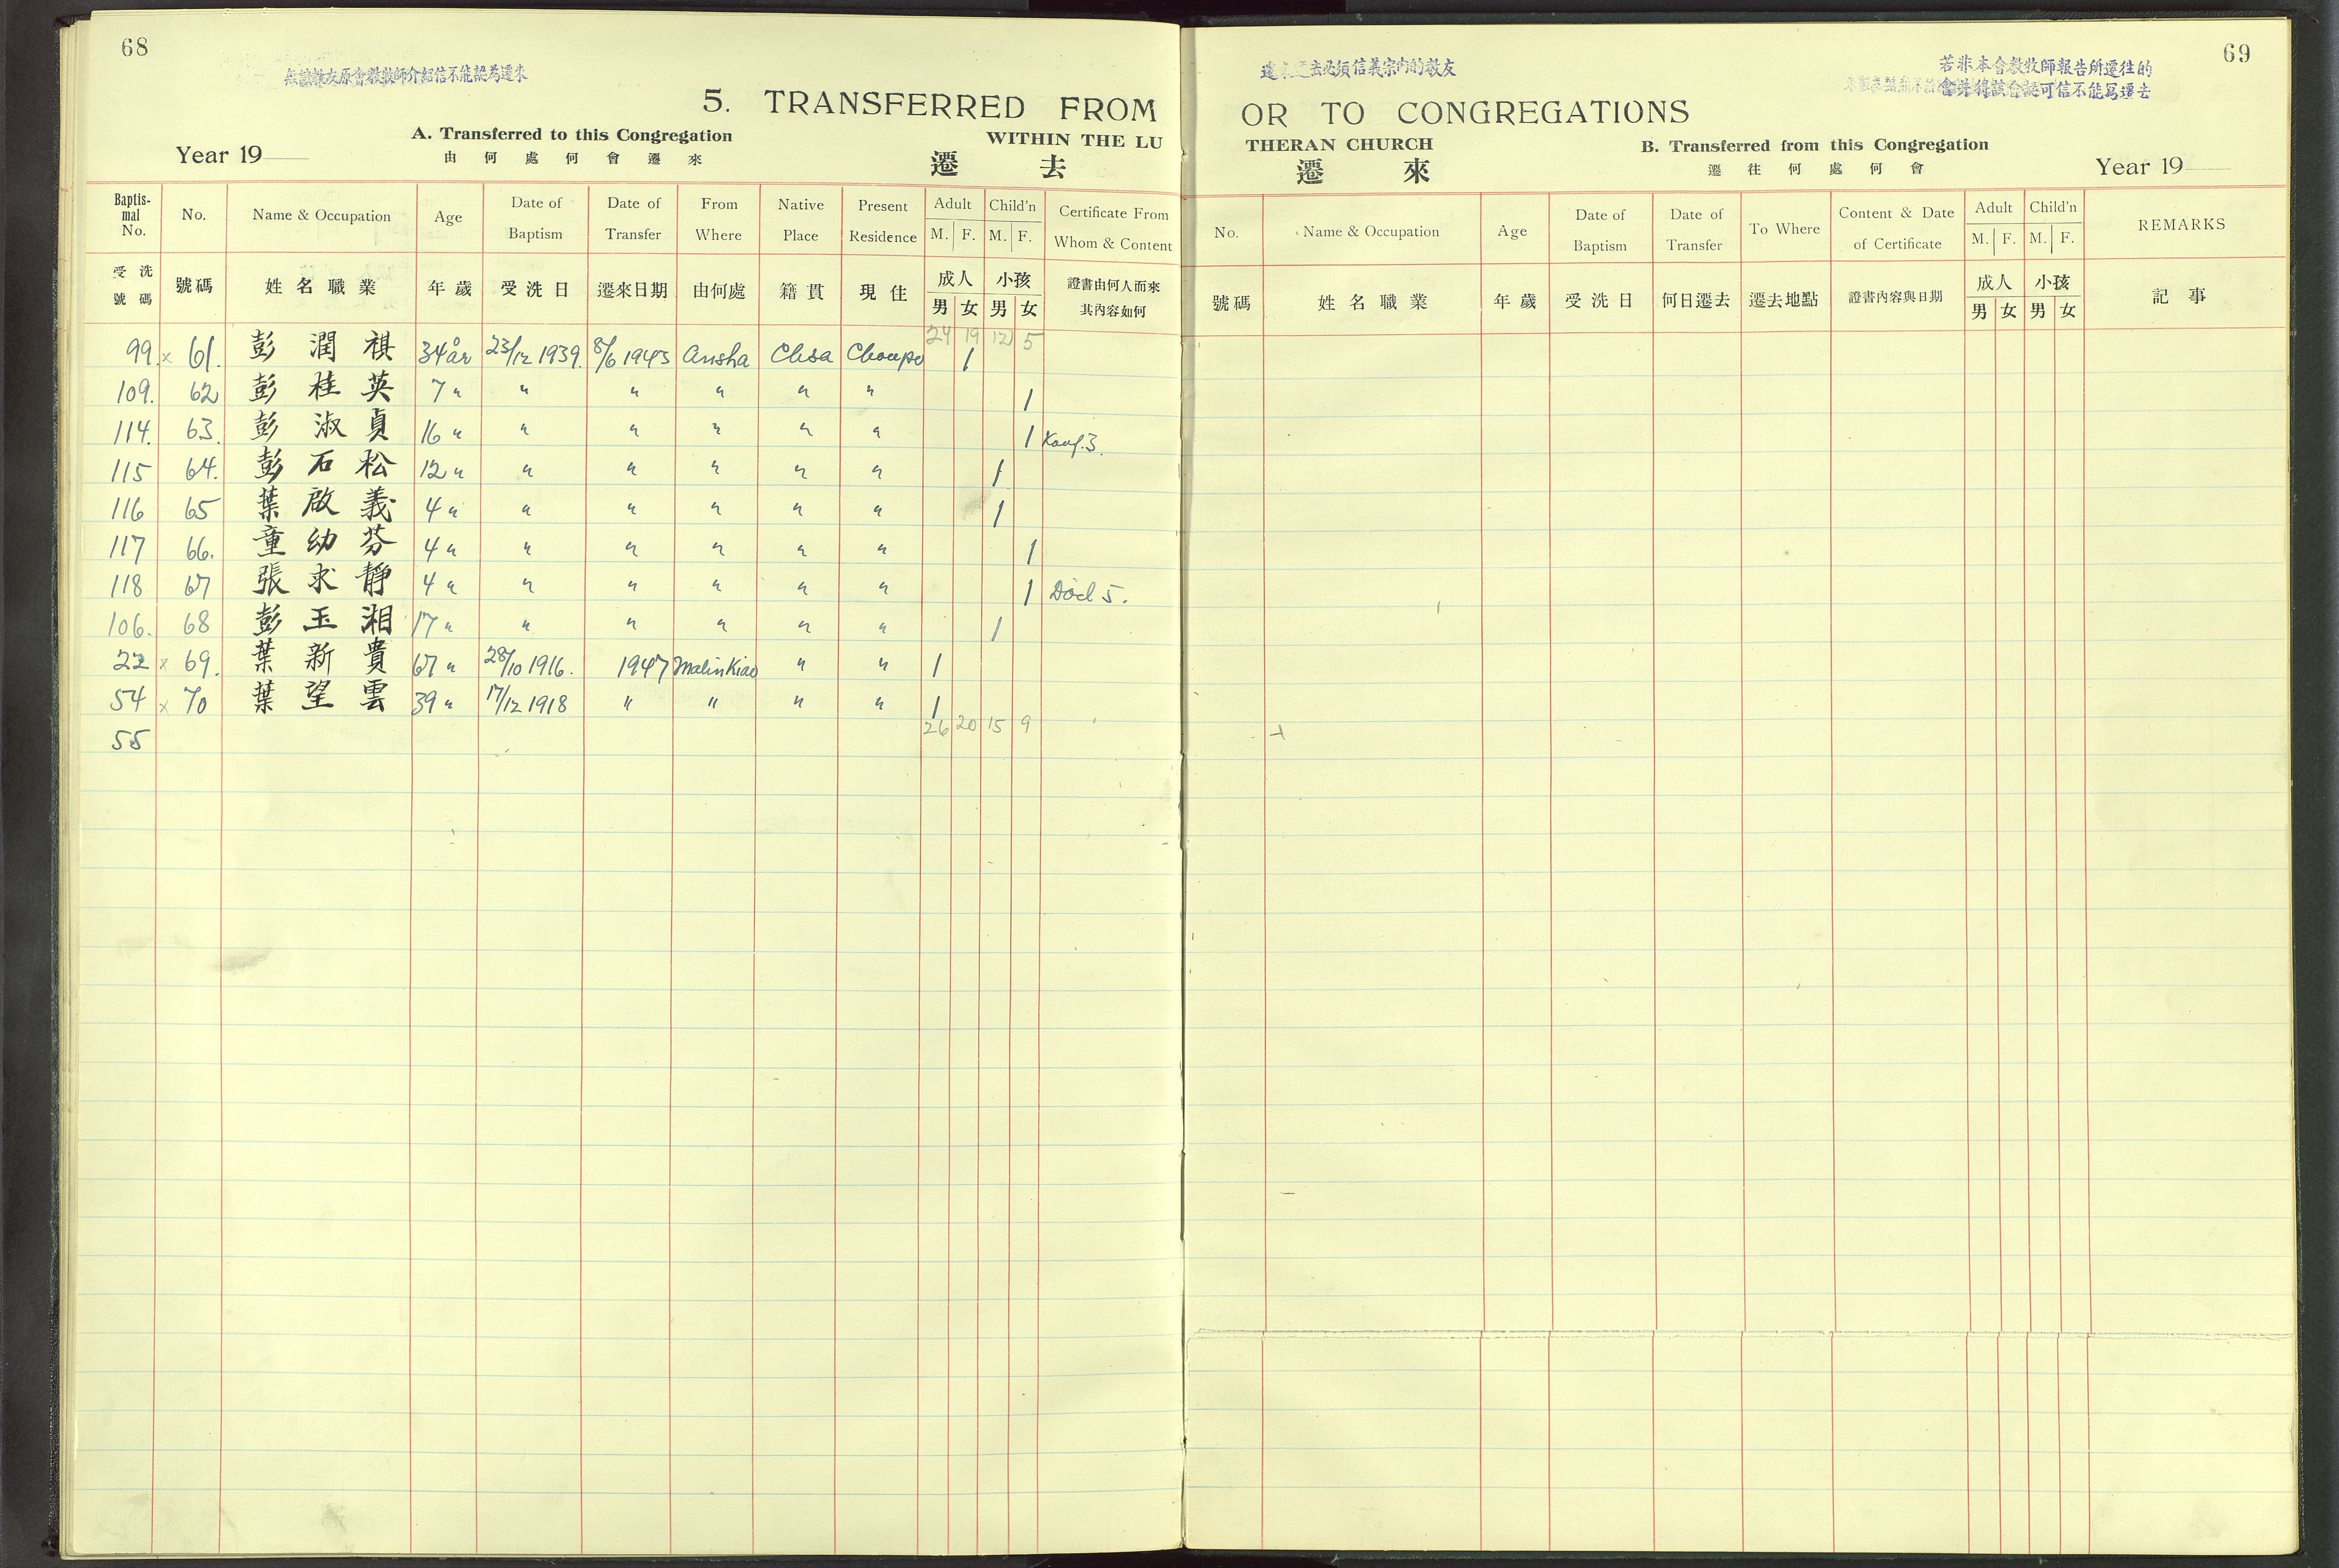 68
無該教友原會教牧師介紹信不能認為遷來
5. TRANSFERRED FROM
A. Transferred to this Congregation
WITHIN THE LU
Year 19
由何處何會遷來
遷去
Baptismal No. No. Name & Occupation Age Date of Baptism Date of Transfer From Where Native Place Present Residence Adult M. F. Child'n M. F. Certificate From Whom & Content
受洗號碼 號碼 姓名職業 年歲 受洗日 遷來日期 由何處 籍貫 現住 成人 男 女 小孩 男 女 證書由何人而來其內容如何
24 19 12 5
99. x 61. 彭潤祺 34 år 23/12 1939. 8/6 1945 Ansha Clisa Choupo 1
109. 62 彭桂英 7 " " " " " " 1
114. 63. 彭淑貞 16 " " " " " " 1 Konf. 3.
115 64. 彭石松 12 " " " " " " 1
116 65 葉啟義 4 " " " " " " 1
117 66. 童幼芬 4 " " " " " " 1
118 67 張求靜 4 " " " " " " 1 Död 5.
106. 68 彭玉湘 17 " " " " " " 1
22 x 69. 葉新貴 67 " 28/10 1916. 1947 Malinkiao " " 1
54 x 70 葉望雲 39 " 17/12 1918 " " " " 1
26 20 15 9
55
69
遷來遷去必須信義宗內的教友
若非本會教牧師報告所遷往的
會並得該會認可信不能寫遷去
OR TO CONGREGATIONS
THERAN CHURCH
B. Transferred from this Congregation
遷來
遷往何處何會
Year 19
No. Name & Occupation Age Date of Baptism Date of Transfer To Where Content & Date of Certificate Adult M. F. Child'n M. F. REMARKS
號碼 姓名職業 年歲 受洗日 何日遷去 遷去地點 證書內容與日期 成人 男 女 小孩 男 女 記事